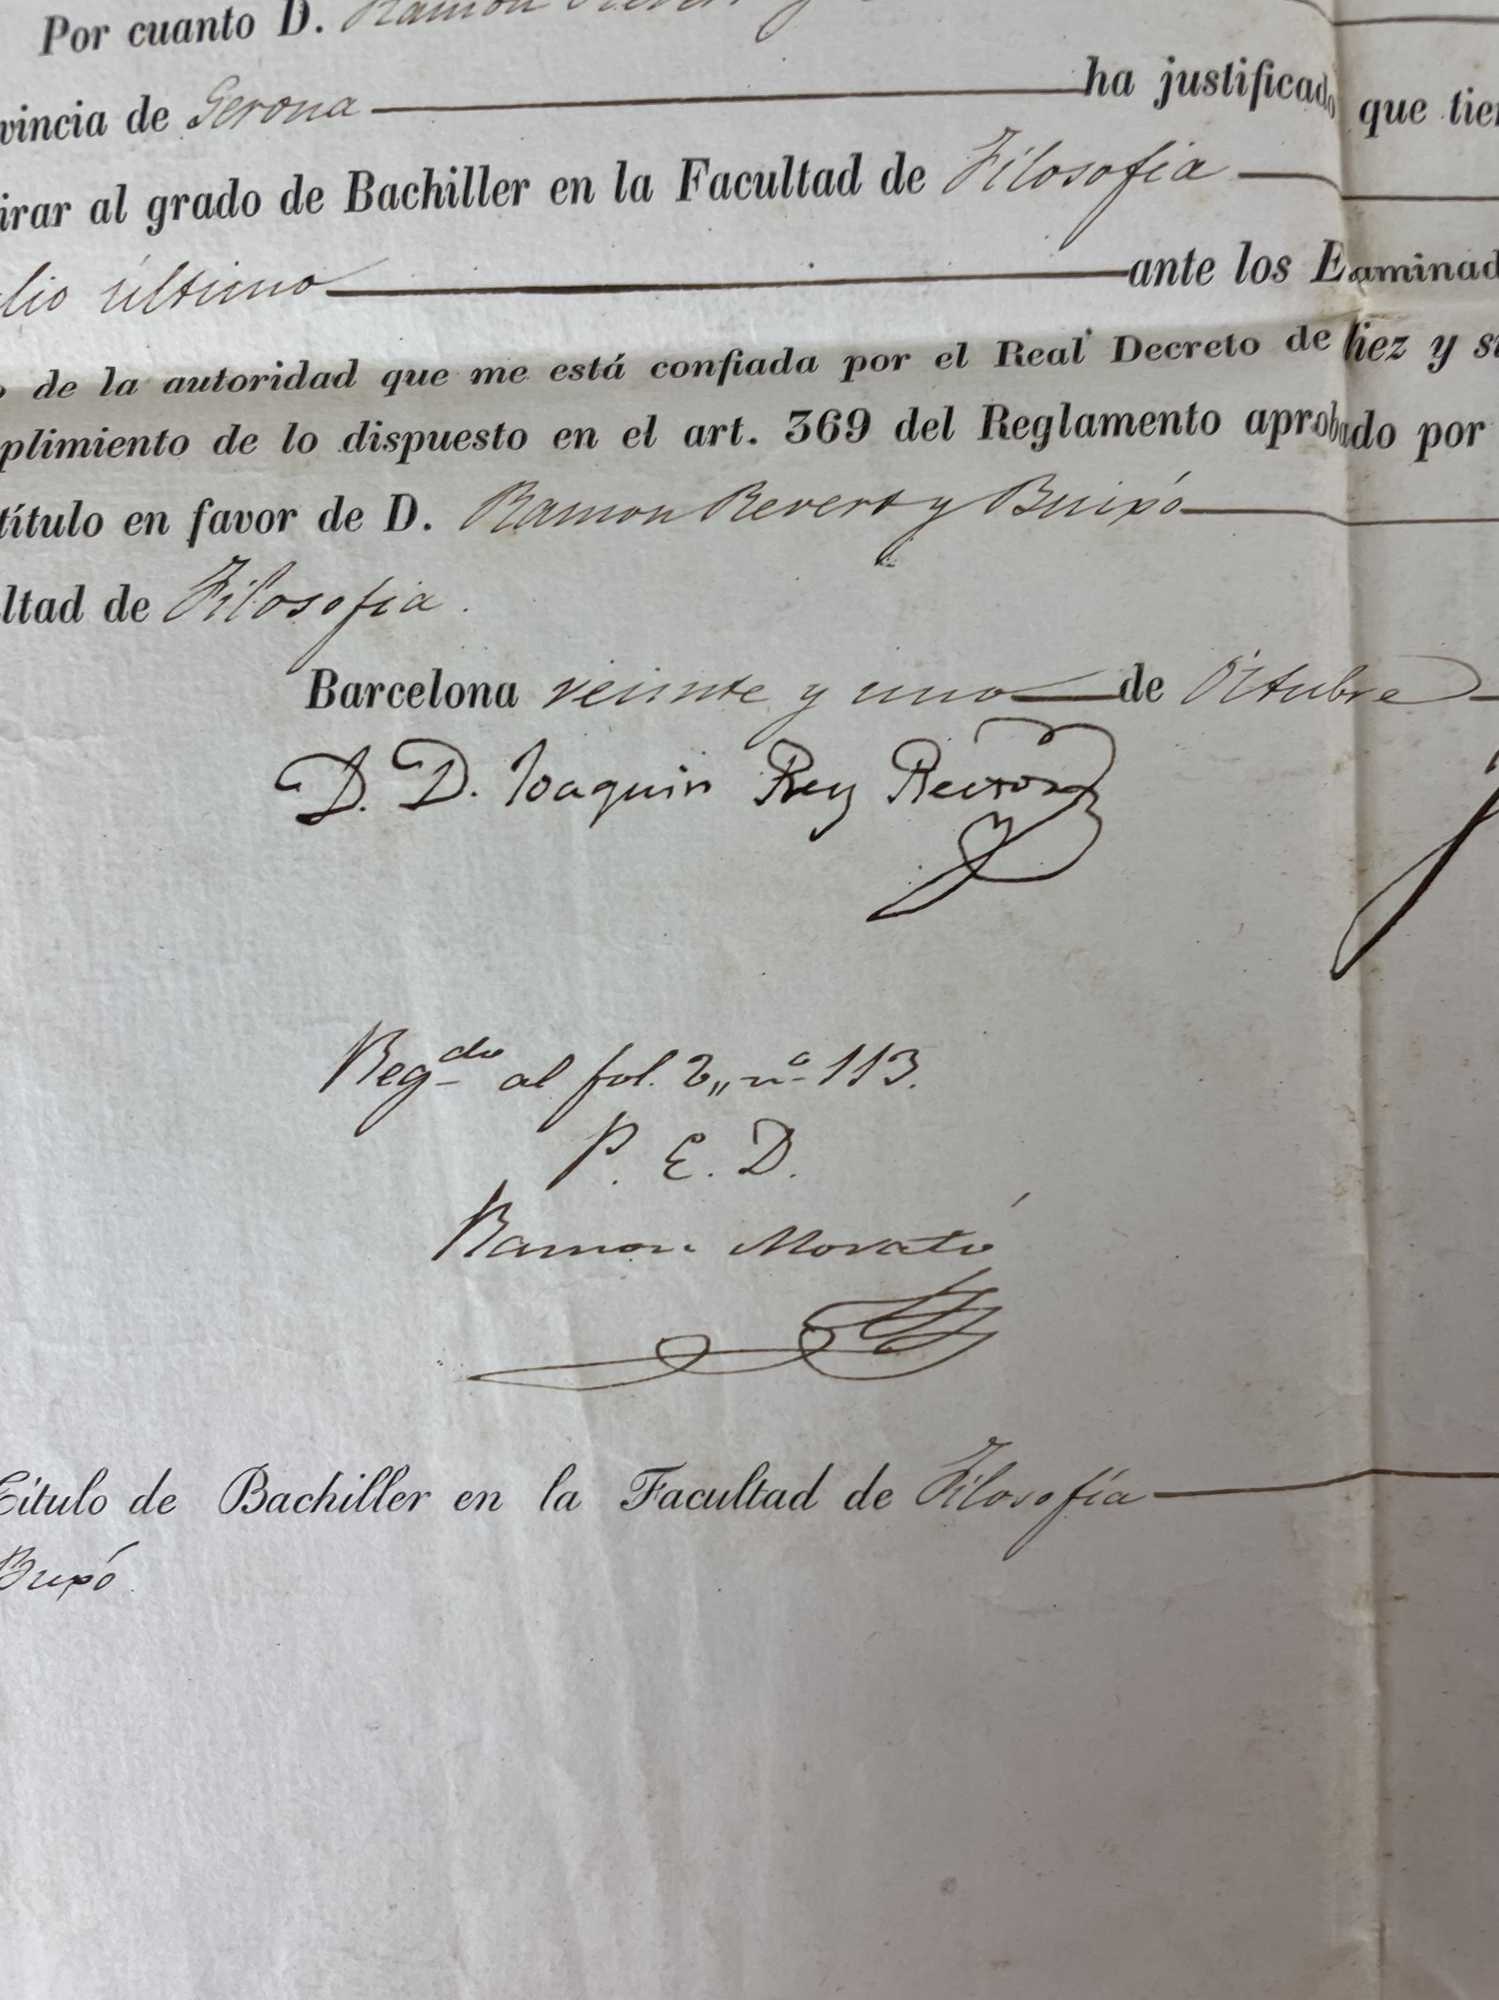 Por cuanto D. Ramon
vincia de Gerona ha justificado que tien
irar al grado de Bachiller en la Facultad de Filosofia
lio último ante los Examinad
o de la autoridad que me está confiada por el Real Decreto de diez y si
plimiento de lo dispuesto en el art. 369 del Reglamento aprobado por
título en favor de D. Ramon Revert y Buixó
ltad de Filosofia.
Barcelona veinte y uno de Octubre
D. D. Joaquin Rey Rector
Reg.do al fol. 2,, n.o 113.
P. E. D.
Ramon Morató
Título de Bachiller en la Facultad de Filosofia
Buxó